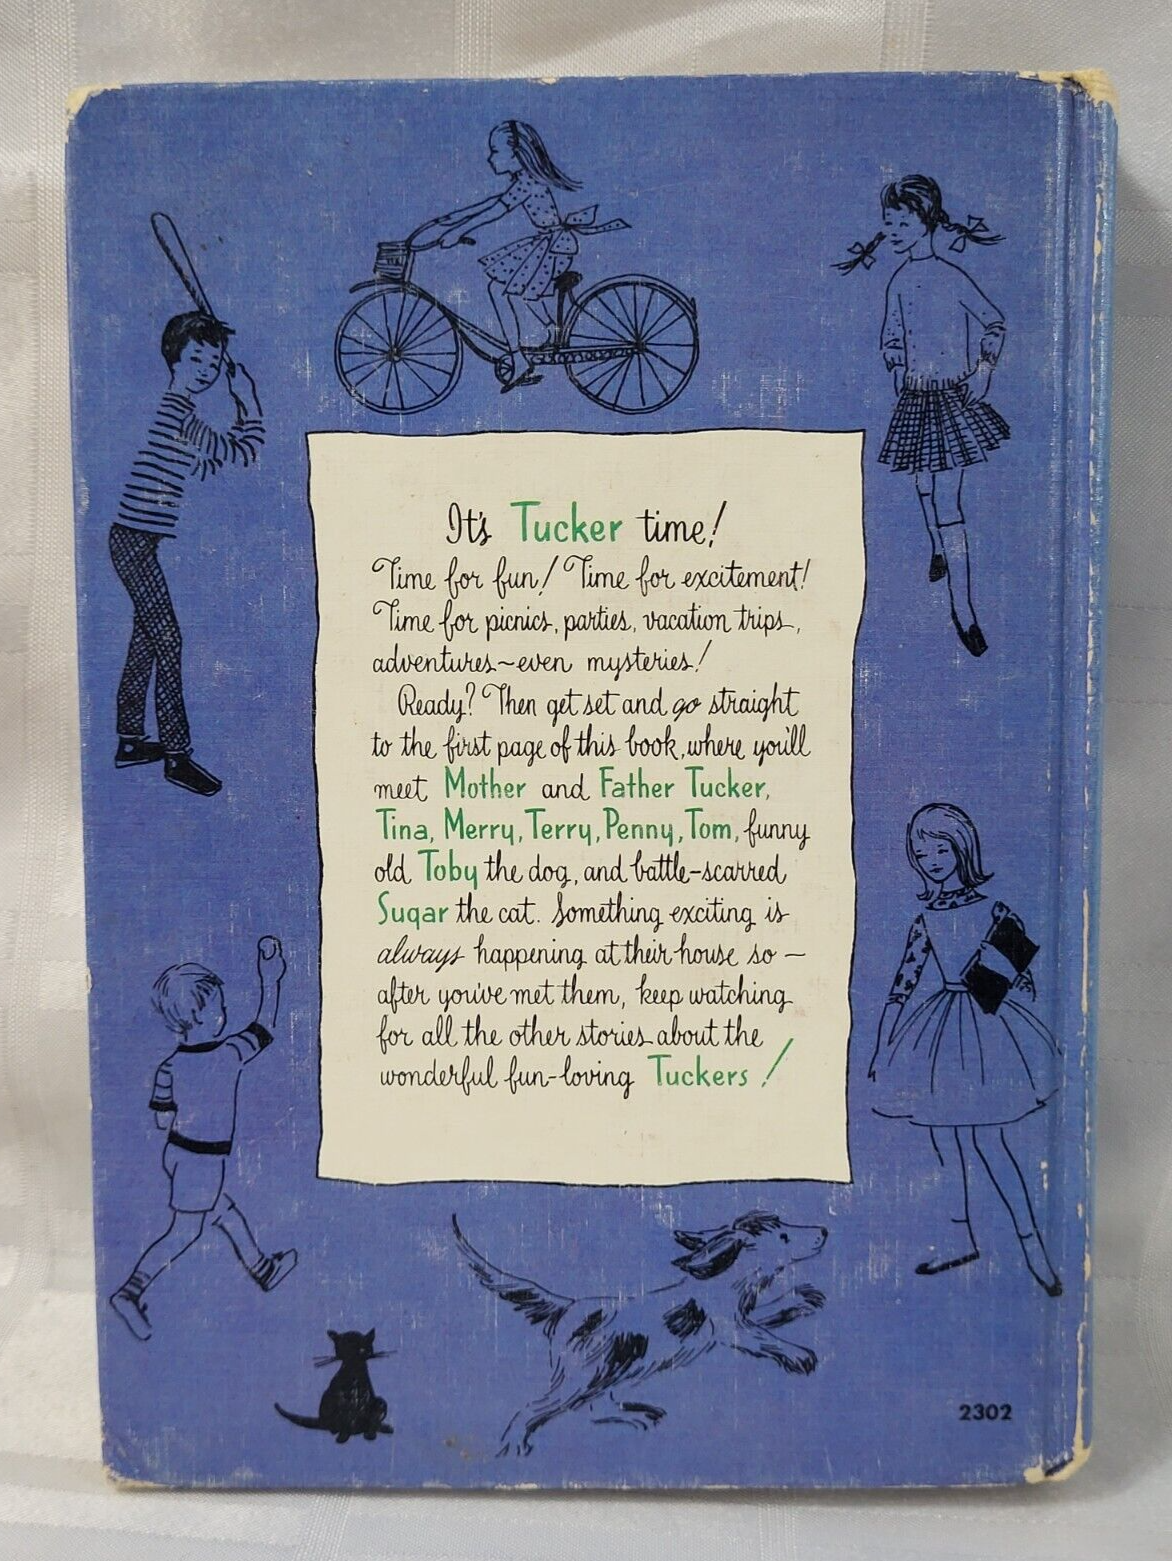 It's Tucker time!
Time for fun! Time for excitement!
Time for picnics, parties, vacation trips,
adventures~even mysteries!
Ready? Then get set and go straight
to the first page of this book, where you'll
meet Mother and Father Tucker,
Tina, Merry, Terry, Penny, Tom, funny
old Toby the dog, and battle-scarred
Sugar the cat. Something exciting is
always happening at their house so —
after you've met them, keep watching
for all the other stories about the
wonderful fun-loving Tuckers!
2302